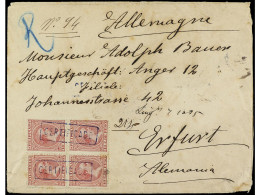 R
Nº 94
Allemagne
Monsieur Adolph Bauer
Hauptgeschäft: Anger 12
Filiale:
Johannesstrasse 42
Erfurt
Alemania